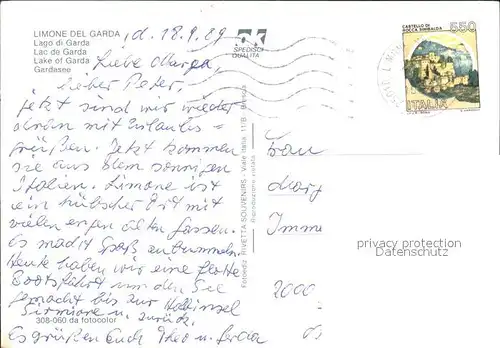 LIMONE DEL GARDA
Lago di Garda
Lac de Garda
Lake of Garda
Gardasee
, d. 18.9.89
SPEDISCI
QUALITÀ
CASTELLO DI
ROCCA SINIBALDA
550
ITALIA
Liebe Marga,
lieber Peter,
jetzt sind wir wieder
dran mit Urlaubs=
grüßen. Jetzt kommen
sie aus dem sonnigen
Italien. Limone ist
ein hübscher Ort mit
vielen engen alten Gassen.
Es macht Spaß zu bummeln.
Heute haben wir eine flotte
Bootsfahrt um den See
gemacht bis zur Halbinsel
Sirmione u. zurück.
Es grüßen Euch Theo u.
308-060 da fotocolor
Fotoediz. RIVETTA SOUVENIRS - Viale Italia, 11/B - Brescia
Riproduzione vietata
Frau
Marg
Imme
2000
privacy protection
Datenschutz